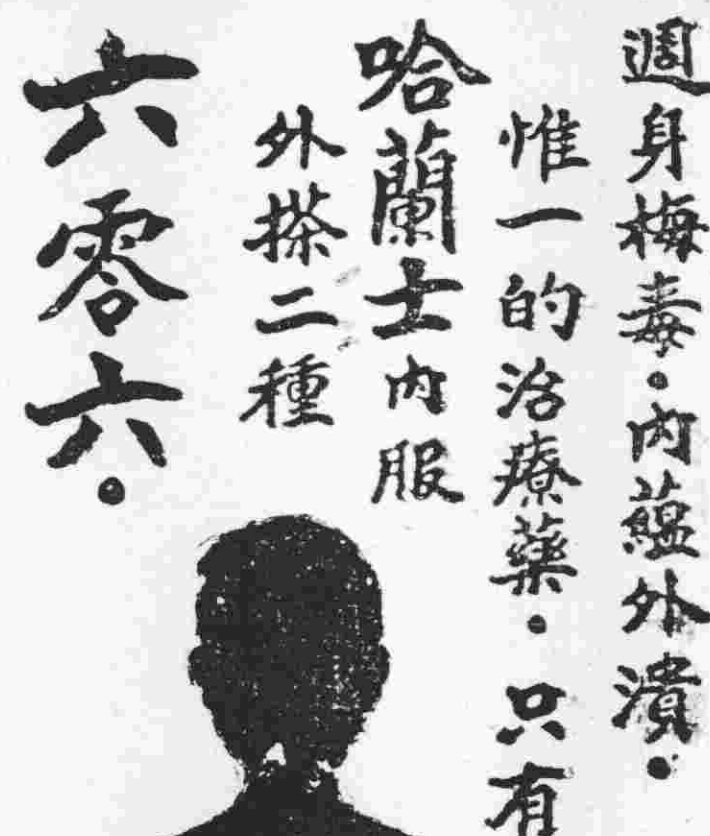 週身梅毒。內蘊外潰。
惟一的治療藥。只有
哈蘭士內服
外搽二種
六零六。